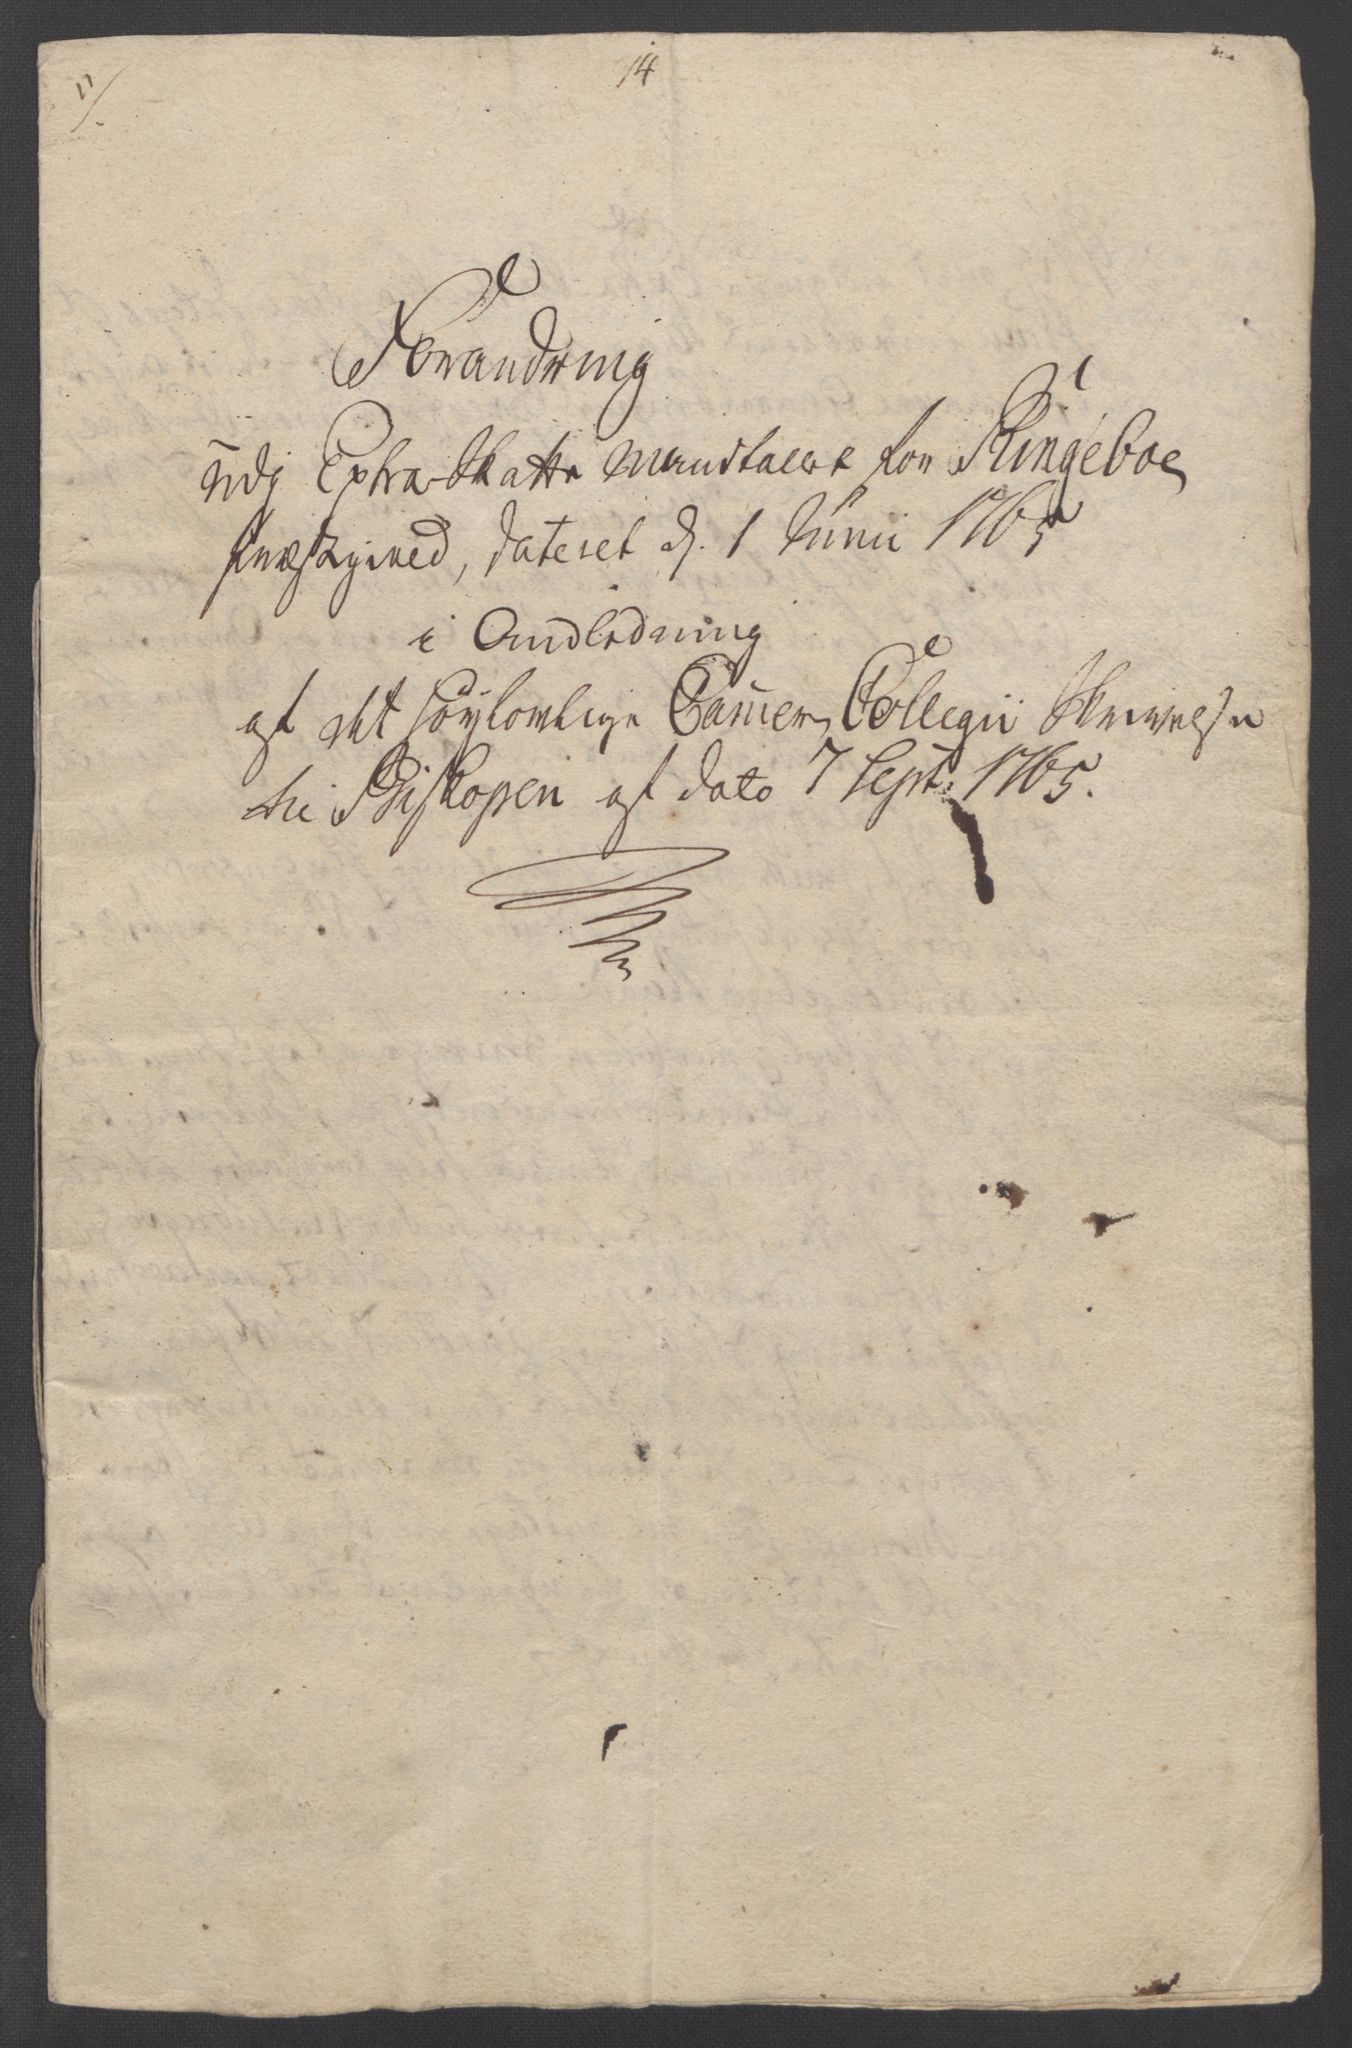 11/
14
Forandring
udj Extra-Skatte Mandtallet for Ringeboe
Præstegield, dateret d. 1 Junii 1765
i Andledning
af det høylovlige Cam̄er Collegii Skrivelse
til Biskopen af dato 7 Sept: 1765.